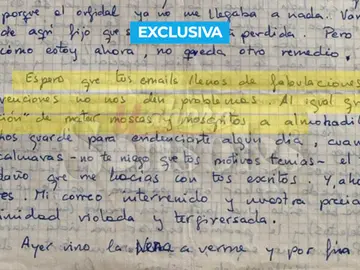 porque el orfidal ya no me llegaba a nada. Va
de aquí fijo que s perdida. Pero
EXCLUSIVA
cómo estoy ahora, no queda otro remedio.
Espero que tus emails llenos de fabulaciones
venciones no nos den problemas. Al igual
ción" de matar moscas y mosquitos a almohadil
nos guarde para enderezarte algún día, cuan
calmavas - no te niego que tus motivos tenías - el
daño que me hacías con tus escritos. Y, aho
res. Mi correo intervenido y nuestra precia
imidad violada y tergiversada.
Ayer vino la Nena a verme y por fin